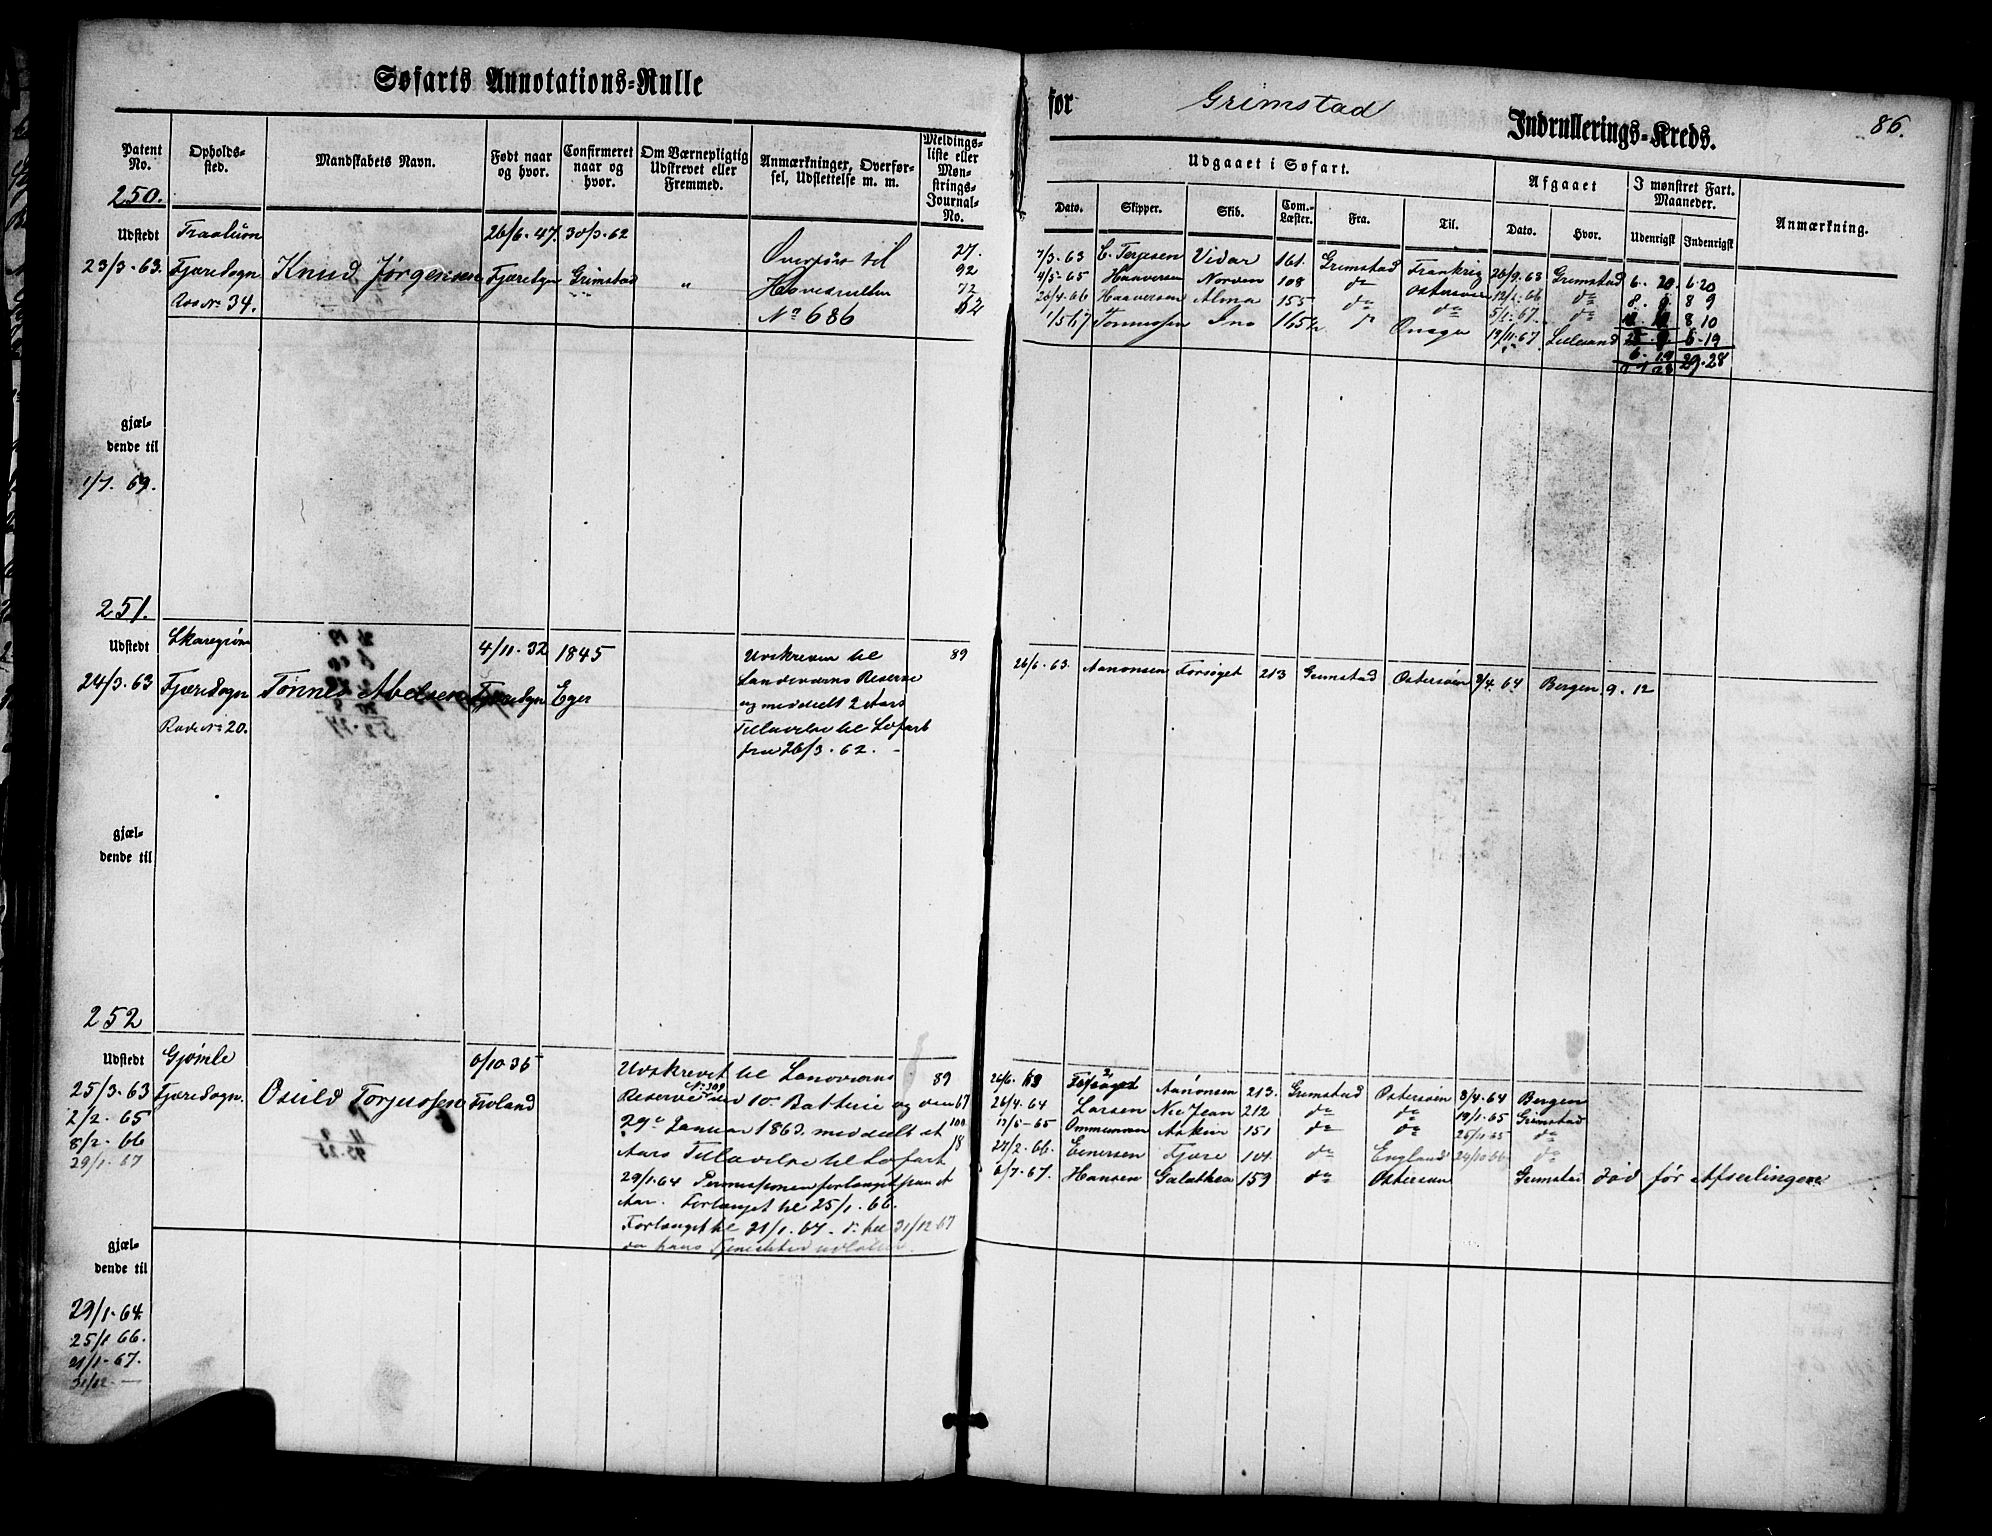 Søfarts Annotations-Rulle
for Grimstad Indrullerings-Kreds. 86.
Patent No. | Opholds-sted. | Mandskabets Navn. | Født naar og hvor. | Confirmeret naar og hvor. | Om Værnepligtig Udskrevet eller Fremmed. | Anmærkninger, Overførsel, Udslettelse m. m. | Meldings-liste eller Mønstrings-Journal-No.
Udgaaet i Søfart. | Afgaaet | I mønstret Fart. Maaneder. | Anmærkning.
Dato. | Skipper. | Skib. | Com.-Læster. | Fra. | Til. | Dato. | Hvor. | Udenrigst | Indenrigst
250.
Udstedt 26/6. 47. 30/3. 62 Overført til 27.
23/3. 63. Fjæresogn Knud Jørgensen Fjæresgn Grimstad " Hovedrullen 92
No 34. No 686 72
62
7/3. 63 C. Terjesen Vidar 161. Grimstad Frankrig 26/9. 63 Grimstad 6. 20 6.20
4/5. 65 Haaversen Norden 108 do Østersøen 12/1. 66 do 8. 9 8 9
26/4. 66 Haaversen Alma 155 do do 5/1. 67. do 8 10
1/5 67 Tønnesen Ino 165½ do 19/11. 67 6. 19 6. 19
29. 28
gjæl-
dende til
1/7. 69.
251.
Udstedt 4/11. 32 1845 Udskreven til 89
24/3. 63 Fjæresogn Tønnes Abelsen Fjæresgn Eger Landeværns Reserve
Rode No 20. og meddelt 2 Aars
Tilladelse til Søfart
fra 26/3. 62.
26/6. 63. Aanonsen Forsøget 213 Grimstad Østersøen 8/4. 64 Bergen 9. 12
gjæl-
dende til
252
Udstedt Gjømle 6/10 36 Udskrevet til Landværns 89
25/3. 63 Fjæresogn. Osuld Torjussen Froland Reserve No 309 10 Batterie og den 67
2/2. 65 29de Januar 1863 meddelt et 100
8/2. 66 Aars Tilladelse til Søfart 18
29/1. 67 29/1. 64 Permissionen forlænget paa et
Aar. Forlænget til 25/1. 66.
Forlænget til 21/1. 67. do til 31/12 67
26/6. 63 Forsøget Aanonsen 213. Grimstad Østersøen 8/4. 64 Bergen
26/4. 64 Larsen Ne Jean 212 do do 19/1. 65 Grimstad
17/5. 65 Ommundsen Askur 151 do do 25/11. 65 do
27/2. 66. Einersen Fjære 104. do England 24/10 66 do
6/7. 67. Hansen Galathea 159 do Østersøen Grimstad død før Afseilingen
gjæl-
dende til
29/1. 64.
25/1 66.
21/1. 67.
31/12. —